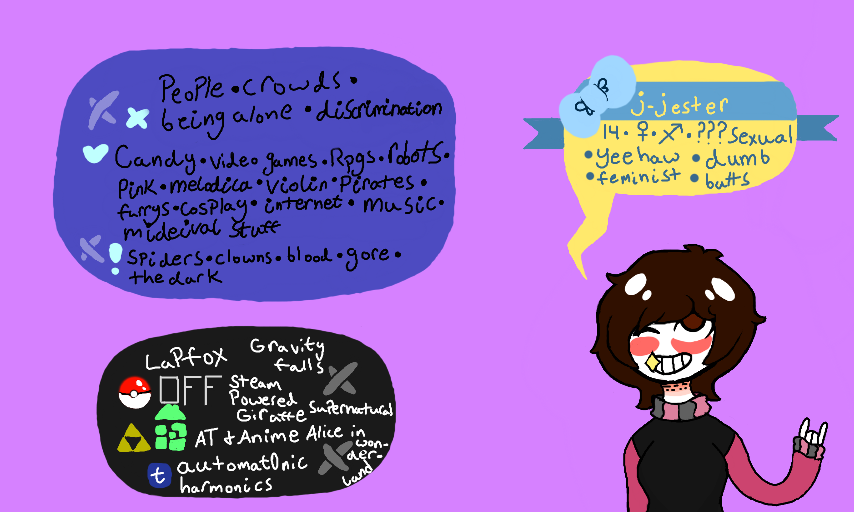 People • crowds •
being alone • discrimination
Candy • video games • Rpgs • robots •
Pink • melodica • violin • Pirates •
furrys • cosplay • internet • music •
mideival stuff
! spiders • clowns • blood • gore •
the dark
j-jester
14 • ♀ • ♐ • ??? sexual
• yeehaw • dumb
• feminist • butts
LaPfox Gravity
falls
OFF Steam
Powered
Giraffe Supernatural
AT & Anime Alice in
won-
der-
land
t automatonic
harmonics